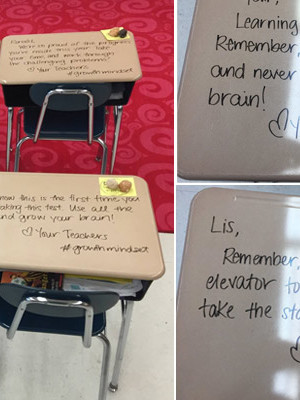 We're so proud of the progress
you've made this year. Take
your time and work through
the challenging problems!
♡ Your Teachers
#growthmindset
know this is the first time you
taking this test. Use all the
and grow your brain!
♡ Your Teachers
#growthmindset
Learning
Remember,
and never
brain!
♡
Lis,
Remember,
elevator to
take the
♡